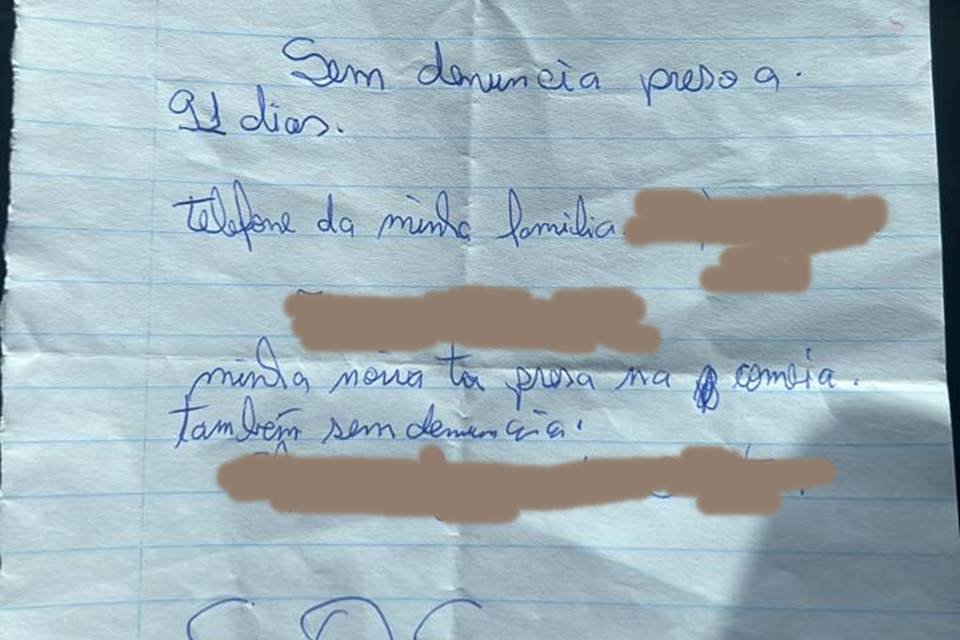 Sem denuncia preso a.
91 dias.
telefone da minha familia
minha noiva ta presa na comeia.
também sem denuncia.